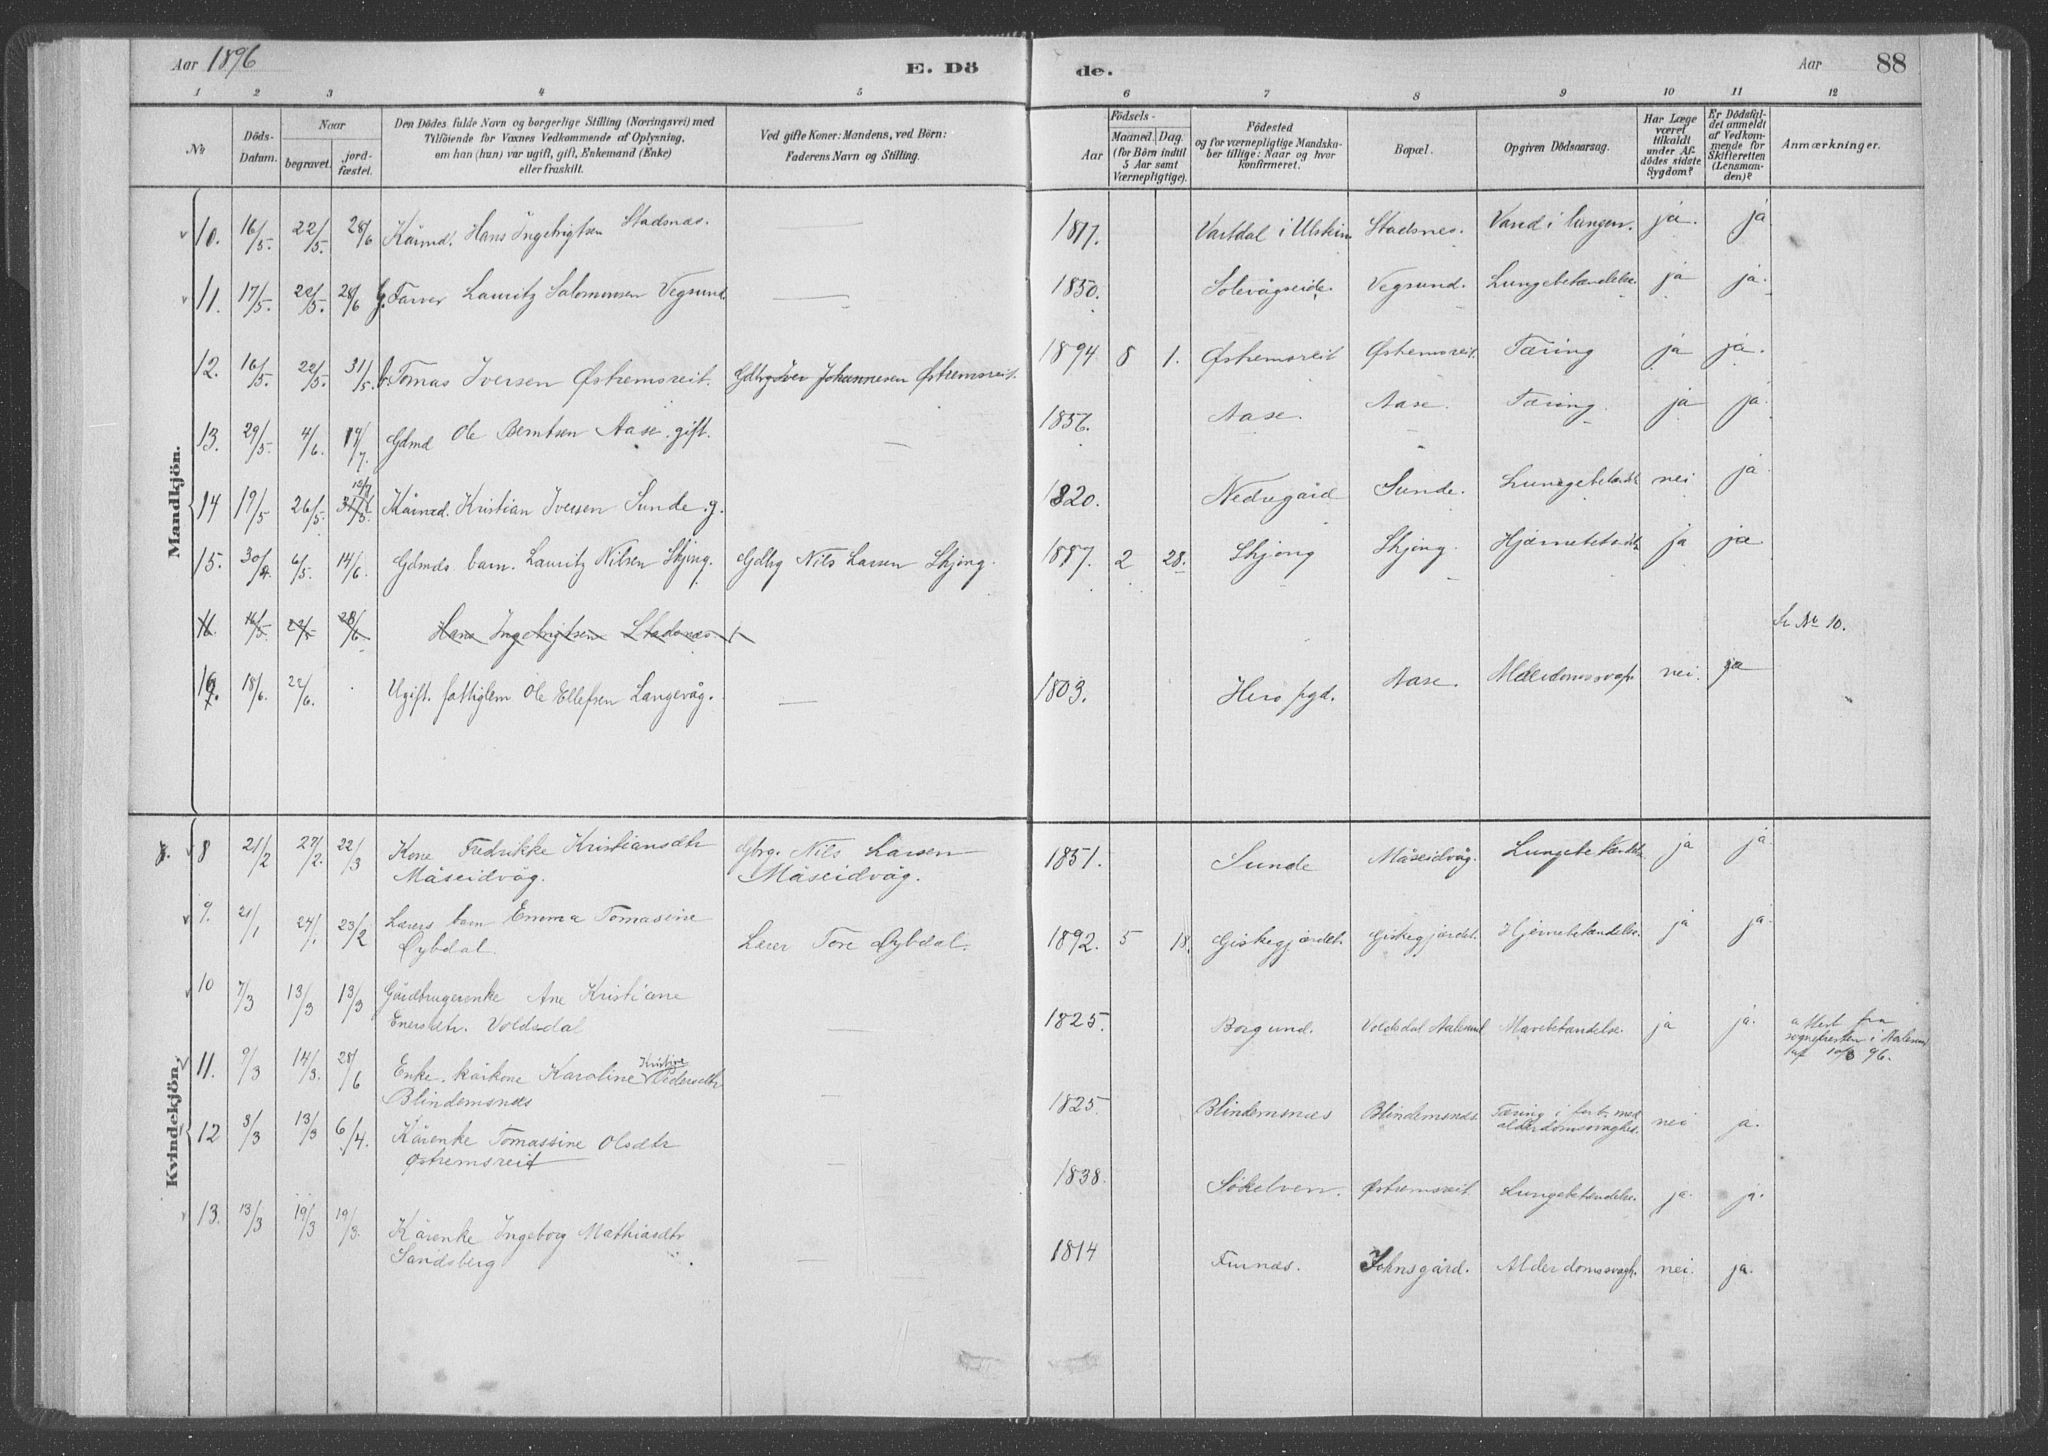 Aar 1896
E. Dö
de.
Aar 88
1 2 3 4 5 6 7 8 9 10 11 12
No
Döds-Datum.
Naar
begravet.
jord-fæstet.
Den Dödes fulde Navn og borgerlige Stilling (Næringsvei) med
Tilföiende for Voxnes Vedkommende af Oplysning,
om han (hun) var ugift, gift, Enkemand (Enke)
eller fraskilt.
Ved gifte Koner: Mandens, ved Börn:
Faderens Navn og Stilling.
Födsels-
Aar
Maaned. Dag.
(for Börn indtil
5 Aar samt
Værnepligtige).
Födested
og for værnepligtige Mandska-
ber tillige: Naar og hvor
konfirmeret.
Bopæl.
Opgiven Dödsaarsag.
Har Læge
været
tilkaldt
under Af-
dödes sidste
Sygdom?
Er Dödsfal-
det anmeldt
af Vedkom-
mende for
Skifteretten
(Lensman-
den)?
Anmærkninger.
Mandkjön.
10. 16/5. 22/5. 28/6 Kårmd. Hans Ingebrigtsen Stadsnæs. 1817. Vartdal i Ulstein Stadsnes. Vand i lungen. ja. ja
11. 17/5. 22/5. 28/6 g. Farver Lauritz Salomonsen Vegsund 1850. Solevågseide. Vegsund. Lungebetændelse. ja ja.
12. 16/5. 22/5. 31/5. b. Tomas Iversen Østremsreit. Gdbrg Iver Johannesen Østremsreit. 1894 8 1. Østremsreit Østremsreit. Tæring ja ja.
13. 29/5. 4/6. 14/7. Gdmd Ole Berntsen Aase. gift. 1856. Aase. Aase. Tæring. ja ja.
14 19/5 26/5. 12/7 31/5. Kårmd. Kristian Iversen Sunde. g. 1820. Nedregård Sunde. Lungebetændelse nei ja
15. 30/4. 6/5. 14/6. Gdmds barn. Lauritz Nilsen Skjong. Gdbrg Nils Larsen Skjong. 1887. 2 28. Skjong Skjong. Hjernebetændelse ja ja
16. 16/5. 22/5 28/6 Hans Ingebrigtsen Stadsnæs. Se No 10.
16. 18/6. 22/6. Ugift. fattiglem Ole Ellefsen Langevåg. 1803. Herø pgd. Aase. Alderdomssvagh. nei. ja
Kvindekjön.
8 21/2 27/2. 22/3 Kone Fredrikke Kristiansdtr Gbrg. Nils Larsen 1851. Sunde Måseidvåg. Lungebetændelse ja ja
Måseidvåg. Måseidvåg.
9. 21/1 24/1. 23/2 Lærers barn Emma Tomasine 1892. 5 18. Giskegjærdet. Giskegjærdet. Hjernebetændelse. ja ja.
Øybdal. Lærer Tore Øybdal.
10 7/3 13/3 13/3 Gårdbrugerenke Ane Kristiane
Enersdtr. Voldsdal 1825. Borgund. Voldsdal Aalesund Mavebetændelse. ja ja. attest fra
sognepresten i Aalesund
10/3 96.
11. 9/3 14/3. 28/6 Enke. kårkone Karoline Kristine Pedersdtr
Blindemsnæs 1825. Blindemsnæs Blindemsnæs. Tæring i forb. med
alderdomssvaghed. nei ja.
12 8/3 13/3 6/4. Kårenke Tomassine Olsdtr
Østremsreit 1838. Søkelven. Østremsreit. Lungebetændelse. ja. ja.
13. 13/3 19/3 19/3. Kårenke Ingeborg Mathiasdtr
Sandsberg 1814 Furnæs. Johnsgård. Alderdomssvagh. nei. ja.